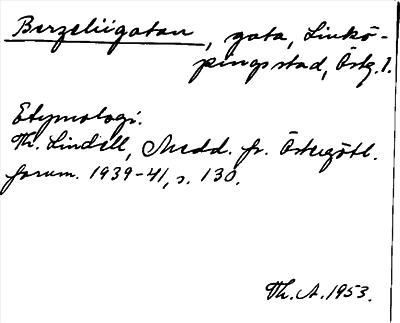 Berzeliigatan, gata, Linkö-
pings stad, Östg. l.
Etymologi.
Th. Lindell, Medd. fr. Östergötl.
forum. 1939-41, s. 130.
Th. A. 1953.